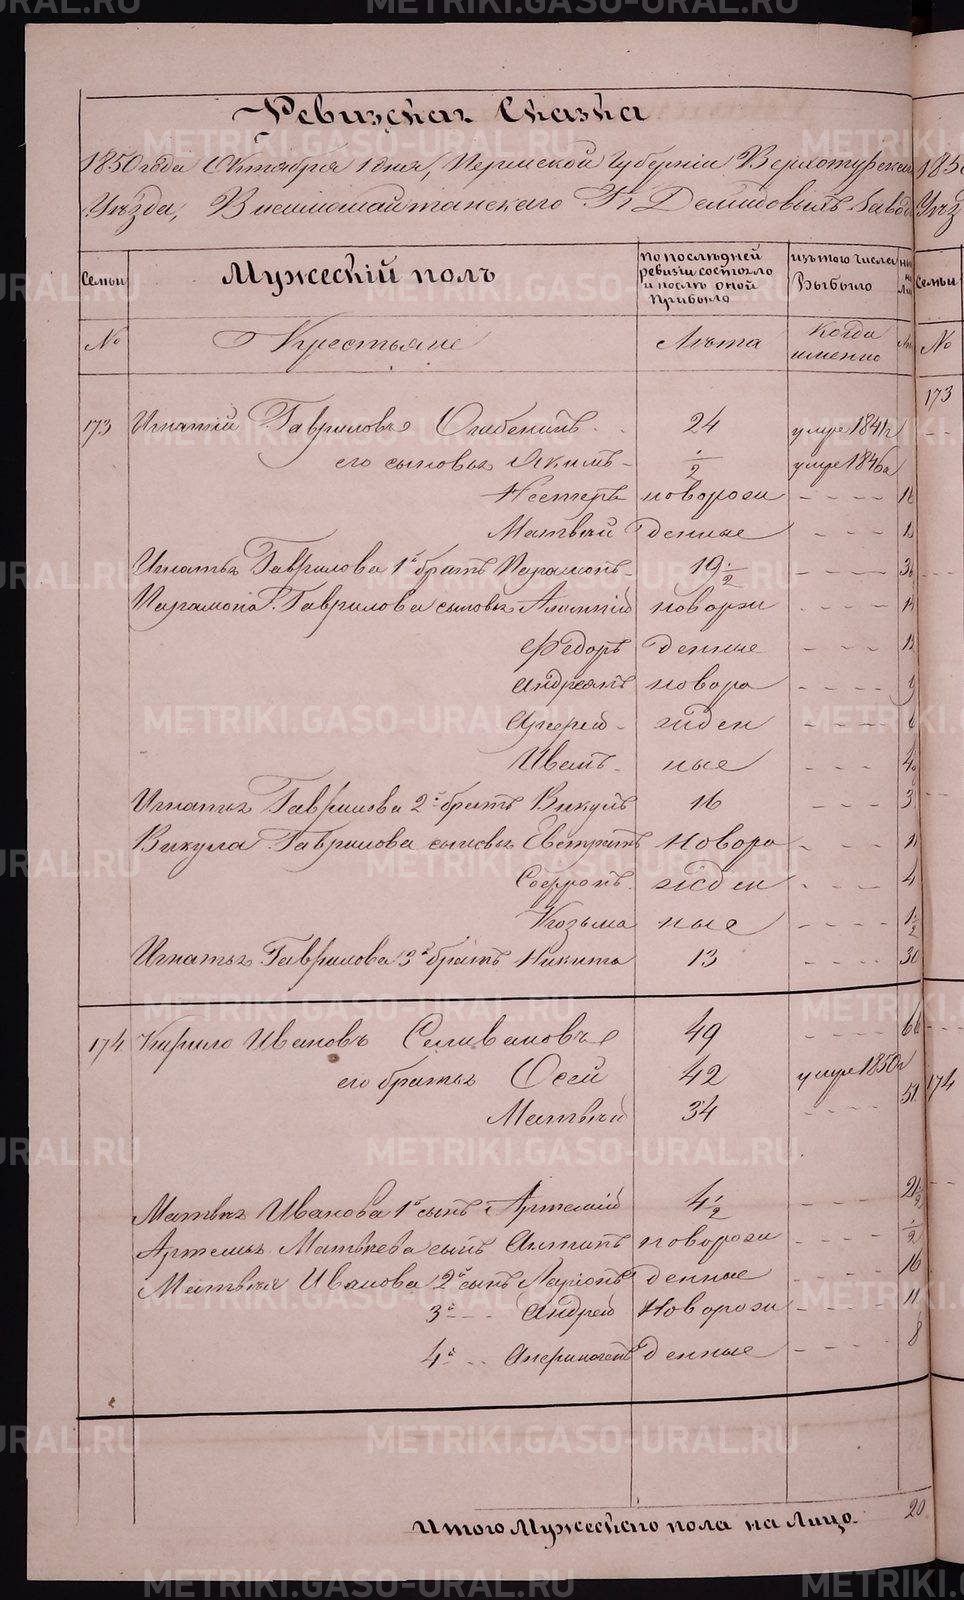 Ревизская Сказка
1850 года Октября 1 дня, Пермской Губернiи Верхотурскаго
Уѣзда, Висимошайтанскаго Г. Демидовыхъ Завода
Семьи
Мужескiй полъ
по последней ревизiи состояло и после оной прибыло
изъ того числа Выбыло
№ Крестьяне Лѣта когда именно
173 Игнатiй Гавриловъ 24 умре 1841г
его сыновья Якимъ ½ умре 1846г
Нестеръ новорож
Матвѣй денные
Игнатья Гаврилова 1й братъ Парамонъ 19½
Парамона Гаврилова сыновья новорож
Федоръ денные
Андреянъ новоро
жден
Иванъ ные
Игнатья Гаврилова 2й братъ Викулъ 16
Викула Гаврилова сыновья новоро
Софронъ жден
Козьма ные 1½
Игнатья Гаврилова 3й братъ Никита 13 30
174 Кирило Ивановъ Селивановъ 49 66
его братья Осей 42 умре 1850г
Матвѣй 34 51
Матвѣя Иванова 1й сынъ Артемiй 4½ 21½
Артемья Матвѣева сынъ Антипъ новорож ½
Матвѣя Иванова 2й сынъ Ларiонъ денные 16
3й Андрей Новорож 11
4й денные 8
Итого Мужескаго пола на Лицо. 20
Семьи
№
173
174
METRIKI.GASO-URAL.RU